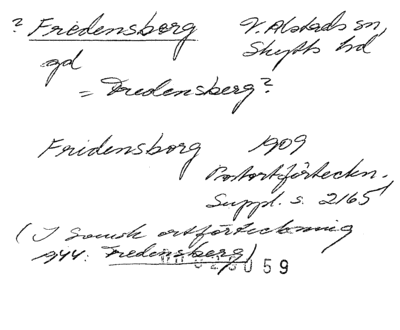 ? Fredensborg V. Alstads sn,
gd Skytts hd
= Fredensberg?
Fridensborg 1909
Postortförteckn.
Suppl. s. 2165
(I Svensk ortförteckning
1944: Fredensberg)
059